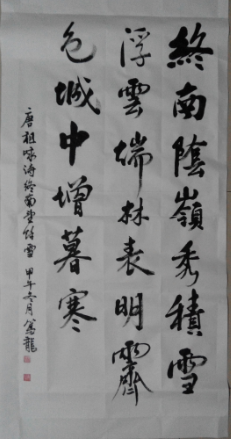 終南陰嶺秀積雪
浮雲端林表明霽
色城中增暮寒
唐祖咏詩終南望餘雪 甲午冬月